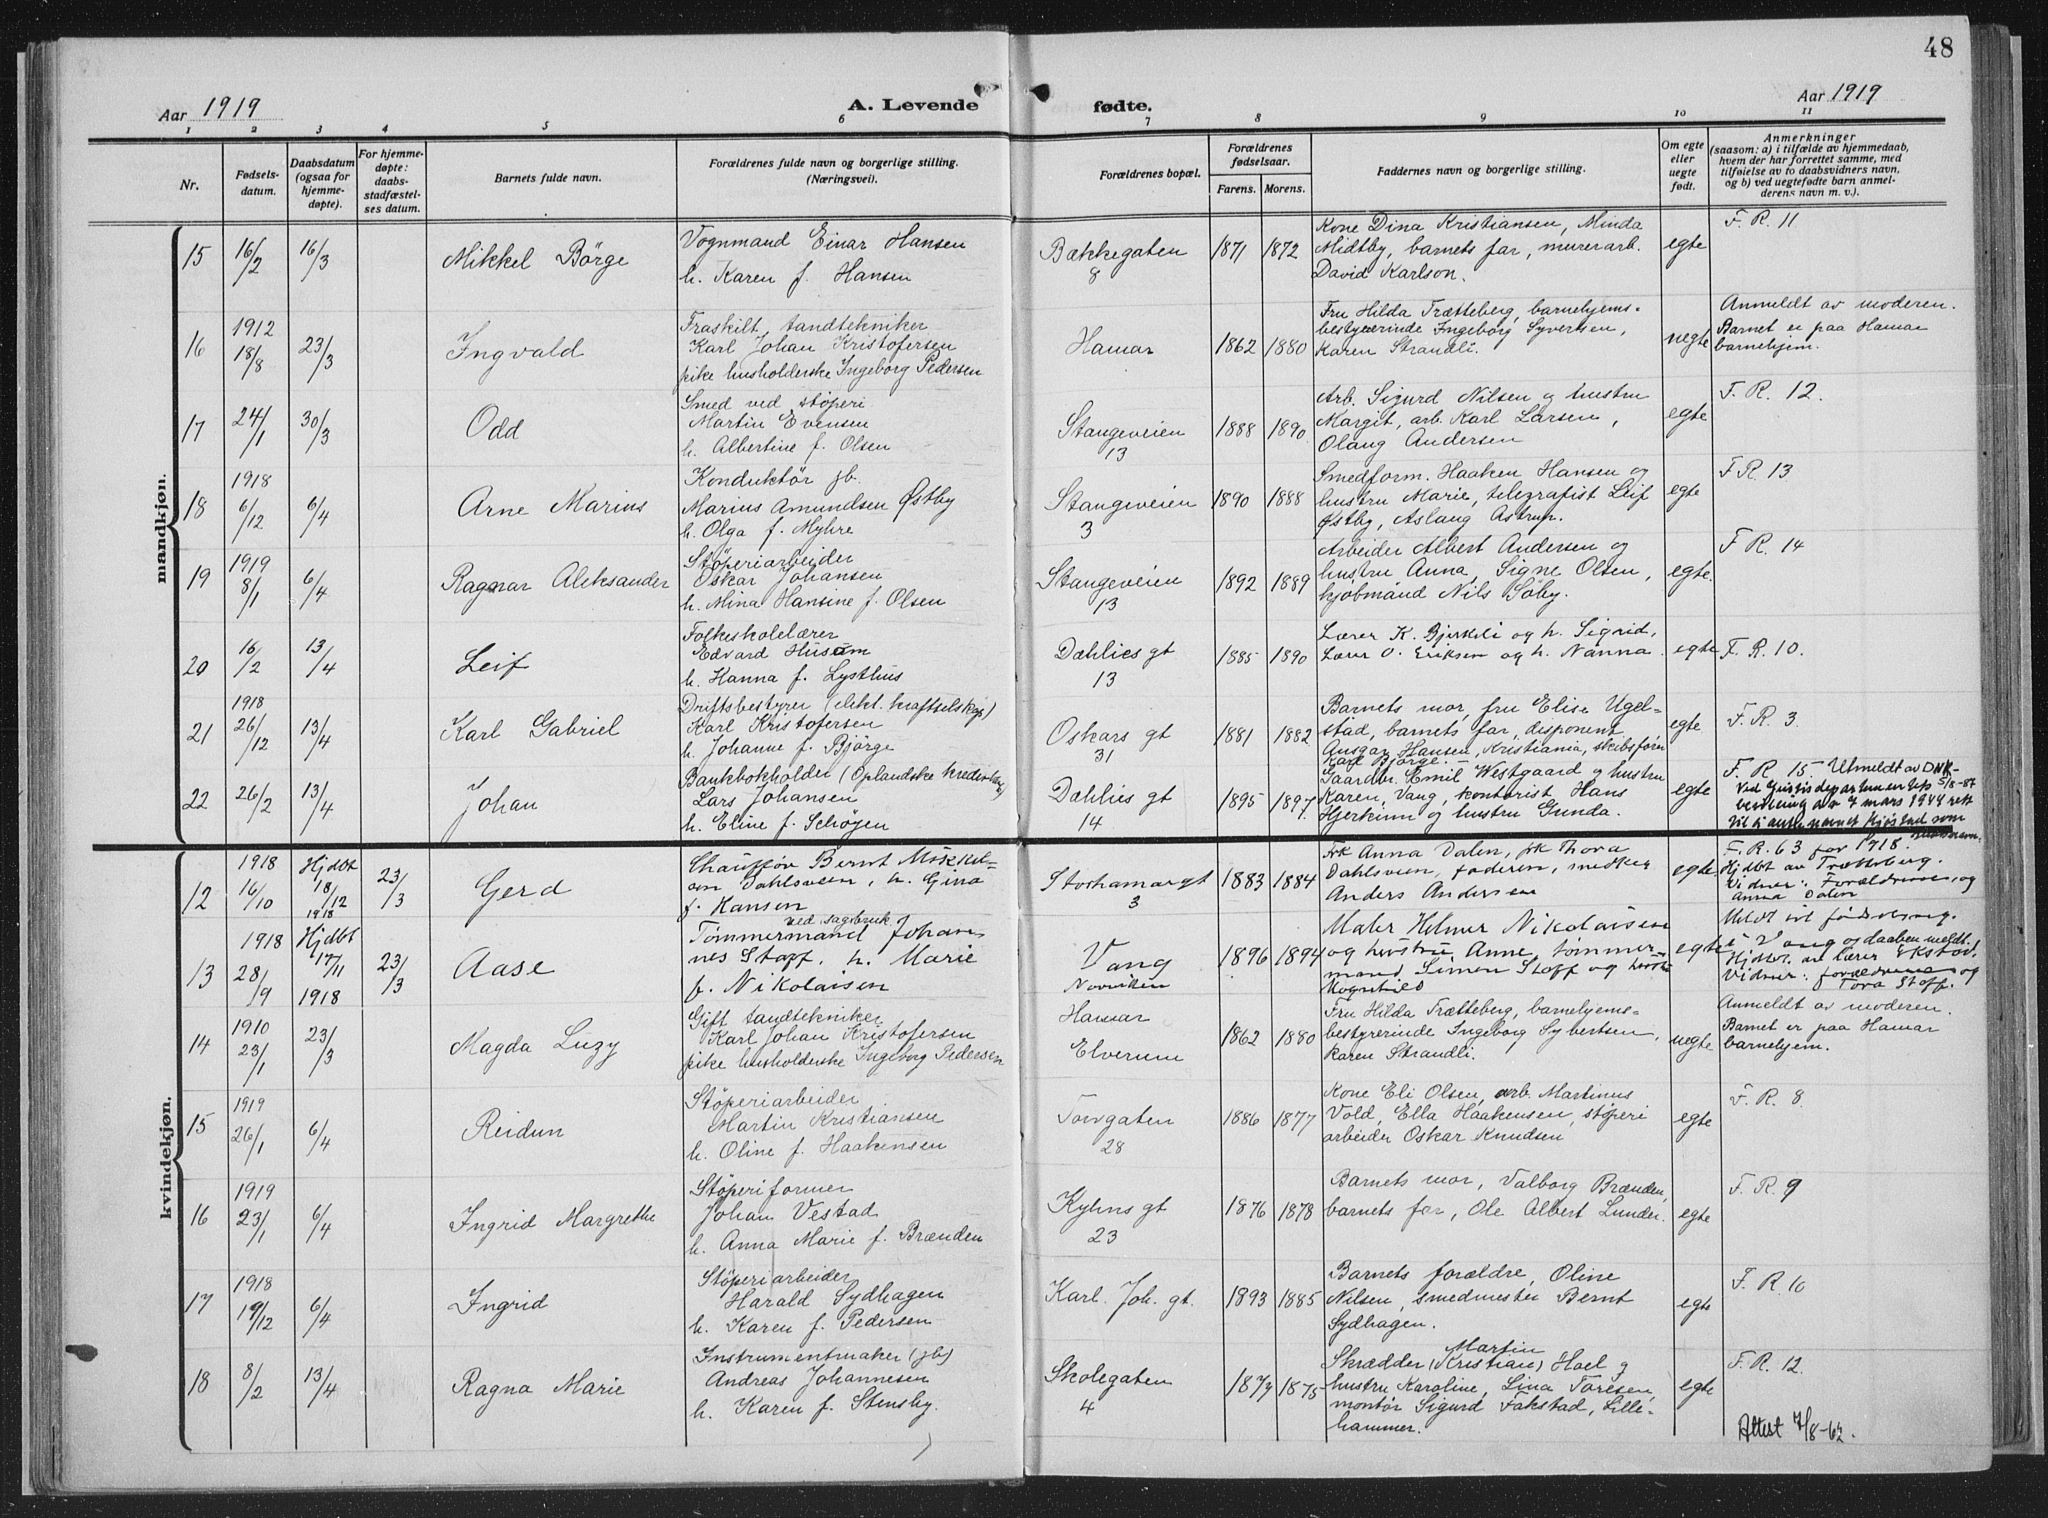 48
Aar 1919
A. Levende
fødte.
Aar 1919
1 2 3 4 5 6 7 8 9 10 11
Nr.
Fødsels-
datum.
Daabsdatum
(ogsaa for
hjemme-
døpte).
For hjemme-
døpte:
daabs-
stadfæstel-
ses datum.
Barnets fulde navn.
Forældrenes fulde navn og borgerlige stilling.
(Næringsvei).
Forældrenes bopæl.
Forældrenes
fødselsaar.
Farens. Morens.
Faddernes navn og borgerlige stilling.
Om egte
eller
uegte
født.
Anmerkninger
(saasom: a) i tilfælde av hjemmedaab,
hvem der har forrettet samme, med
tilføielse av to daabsvidners navn,
og b) ved uegtefødte barn anmel-
derens navn m. v.).
mandkjøn.
15 16/2 16/3 Mikkel Börge
Vognmand Einar Hansen
h. Karen f. Hansen
Bækkegaten
8
1871 1872
Kone Dina Kristiansen, Minda
Midtby, barnets far, murerarb.
David Karlson.
egte
F. R. 11
16 1912
18/8 23/3 Ingvald
Fraskilt tandtekniker
Karl Johan Kristofersen
pike husholderske Ingeborg Pedersen
Hamar
1862 1880
Fru Hilda Trætteberg, barnehjems-
bestyrerinde Ingeborg Syvertsen,
Karen Strandli.
uegte
Anmeldt av moderen.
Barnet er paa Hamar
barnehjem.
17 24/1 30/3 Odd
Smed ved støperi
Martin Evensen
h. Albertine f. Olsen
Stangeveien
13
1888 1890
Arb. Sigurd Nilsen og hustru
Margit, arb. Karl Larsen,
Olaug Andersen
egte
F. R. 12.
18 1918
6/12 6/4 Arne Marius
Konduktör jb.
Marius Amundsen Østby
h. Olga f. Myhre
Stangeveien
3
1890 1888
Smedform. Haaken Hansen og
hustru Marie, telegrafist Leif
Østby, Aslaug Astrup.
egte
F R. 13
19 1919
8/1 6/4 Ragnar Aleksander
Støperiarbeider
Oskar Johansen
h. Mina Hansine f. Olsen
Stangeveien
13
1892 1889
Arbeider Albert Andersen og
hustru Anna, Signe Olsen,
kjøbmand Nils Söby.
egte.
F R. 14
20 16/2 13/4 Leif
Folkeskolelærer
Edvard Husum
h. Hanna f. Lysthus
Dæhlies gt
13
1885 1890
Lærer K. Bjerkeli og h. Sigrid,
Lærer O. Eriksen og h. Nanna.
egte
F. R. 10.
21 1918
26/12 13/4 Karl Gabriel
Driftsbestyrer (elekt. kraftselskap)
Karl Kristofersen
h. Johanne f. Bjørge
Oskars gt
31
1881 1882
Barnets mor, fru Elise Ugel-
stad, barnets far, disponent
Ansgar Hansen, Kristiania, skibsförer
Karl Bjørge.
egte
F. R. 3.
22 26/2 13/4 Johan
Bankbokholder (Oplandske
Lars Johansen
h. Eline f. Schøyen
Dæhlies gt
14
1895 1897
Gaardbr. Emil Westgaard og hustru
Karen, Vang, kontorist Hans
Hjerkinn og hustru Gunda.
egte
F. R. 15. Utmeldt av DNK
5/8-87
Ved Justisdepartementets
bevilling av 7 mars 1944 rett
til å anta navnet Kjøstad som
kvindekjøn.
12 1918
16/10 Hjdbt
18/12
1918 23/3 Gerd
Chauffør Bernt
Dahlsveen, h. Gina
f. Hansen
Storhamargt
3
1883 1884
Frk Anna Dalen, frk Thora
Dahlsveen, faderen, snekker
Anders Andersen
egte
F. R. 63 for 1918.
Hjdbt av Trætteberg.
Vidner: Forældrene, og
Anna Dalen
13 1918
28/9 Hjdbt
17/11
1918 23/3 Aase
ved sagbruk
Tømmermand Johan-
nes Staff, h. Marie
f. Nikolaisen
Vang
Norviken
1896 1894
Maler Helmer Nikolaisen
og hustru Anne, tømmer
mand Simen Staff og hustru
egte
Meldt til fødselsreg.
i Vang og daaben meldt.
Hjdbt. av lærer Ekstad.
Vidner: forældrene og
Tora Stoff.
14 1910
23/1 23/3 Magda Luzy
Gift tandtekniker
Karl Johan Kristofersen
pike husholderske Ingeborg Pedersen
Hamar
Elverum
1862 1880
Fru Hilda Trætteberg, barnehjems-
bestyrerinde Ingeborg Sybertsen,
Karen Strandli.
uegte
Anmeldt av moderen.
Barnet er paa Hamar
barnehjem.
15 1919
26/1 6/4 Reidun
Støperiarbeider
Martin Kristiansen
h. Oline f. Haakensen
Torvgaten
28
1886 1877
Kone Eli Olsen, arb. Martinus
Vold, Ella Haakensen, støperi
arbeider Oskar Knudsen
egte
F. R. 8.
16 1919
23/1 6/4 Ingrid Margrethe
Støperiformer
Johan Vestad
h. Anna Marie f. Brænden
Kyhns gt
23
1876 1878
Barnets mor, Valborg Brænden,
barnets far, Ole Albert Lunder.
egte
F. R. 9
17 1918
19/12 6/4 Ingrid
Støperiarbeider
Harald Sydhagen
h. Karen f. Pedersen
Karl. Joh. gt.
1893 1885
Barnets forældre, Oline
Nilsen, smedmester Bernt
Sydhagen.
egte
F. R. 10
18 8/2 13/4 Ragna Marie
Instrumentmaker (jb)
Andreas Johannesen
h. Karen f. Stensby.
Skolegaten
4
1879 1875
Martin
Skrædder (Kristian) Hoel og
hustru Karoline, Lina Toresen,
montør Sigurd Fakstad, Lille-
hammer.
egte
F. R. 12.
Attest 7/8-62.